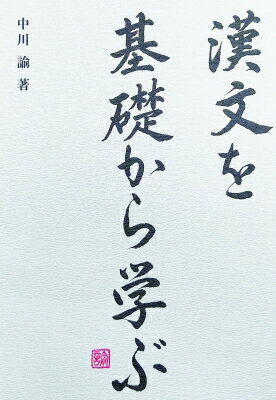 漢文を
基礎から学ぶ
中川 諭 著
諭